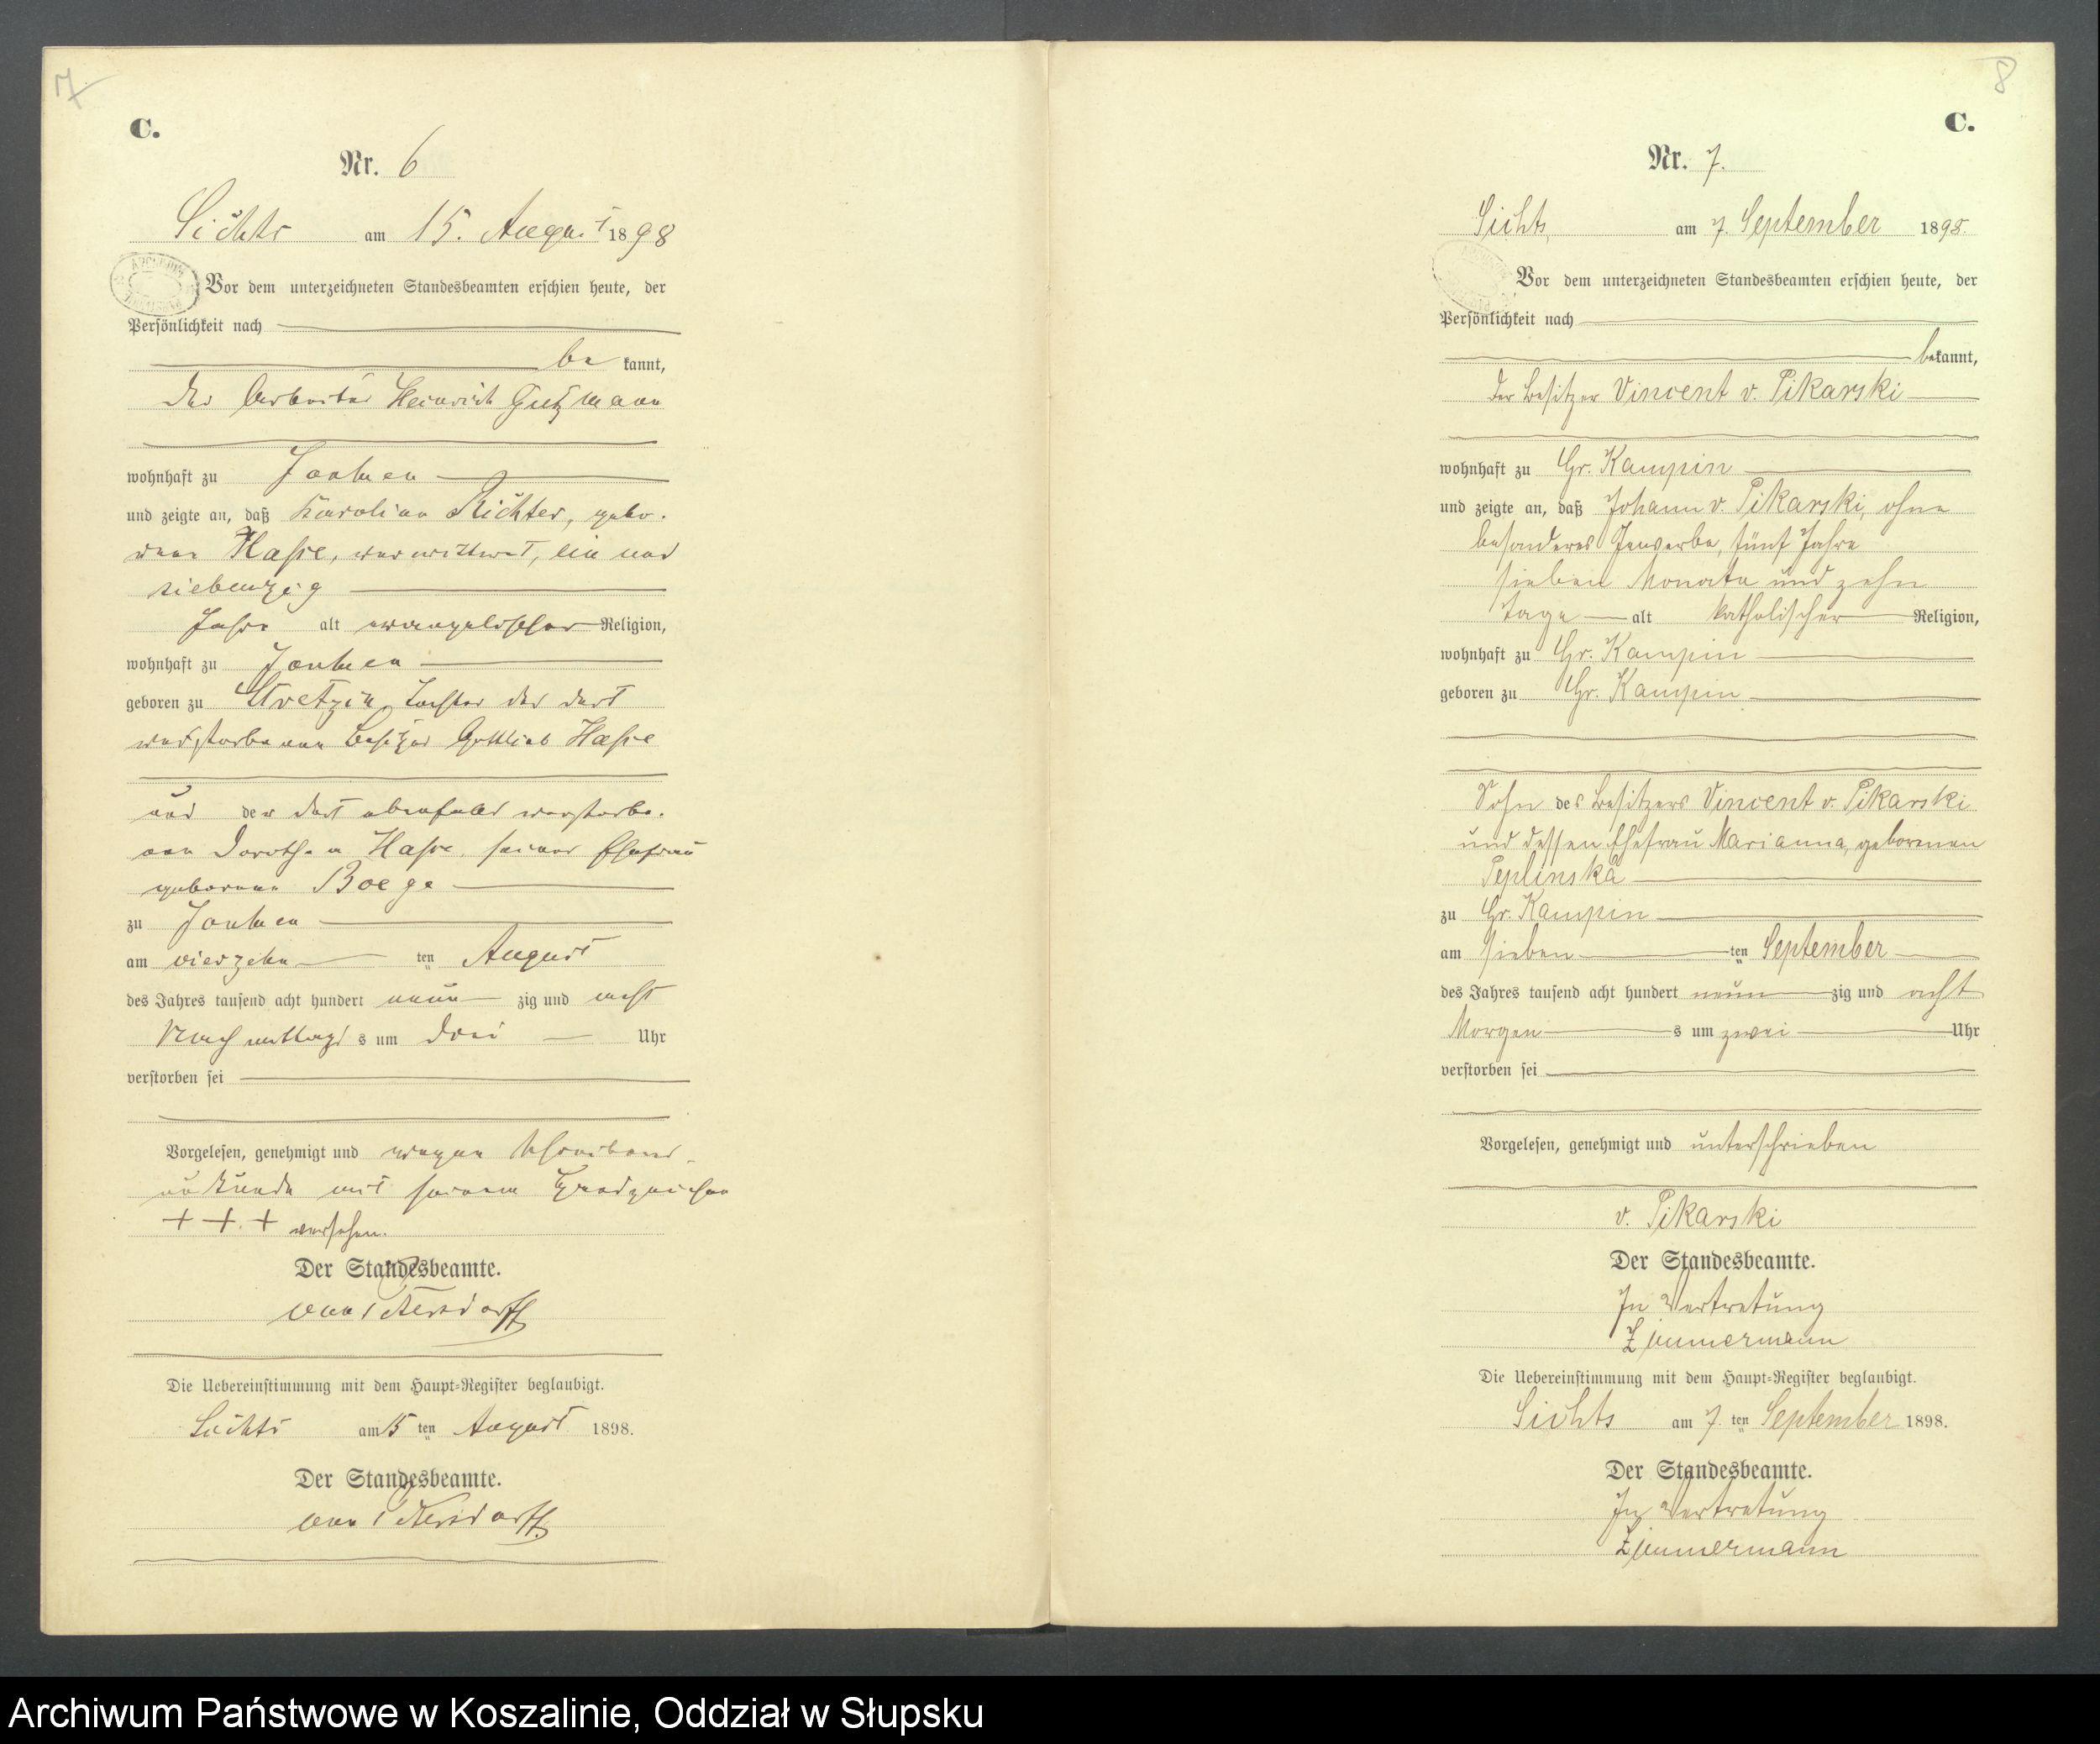 7
C.
Nr. 6
Lichts am 15. August 1898
Vor dem unterzeichneten Standesbeamten erschien heute, der
Persönlichkeit nach
be kannt,
der Arbeiter Heinrich Gutzmann
wohnhaft zu
und zeigte an, daß Karoline Richter, gebo-
rene Hasse, verwittwet, ein und
siebenzig
Jahre alt evangelischer Religion,
wohnhaft zu
geboren zu Stretzin, Tochter des dort
verstorbenen Besitzer Gottlieb Hasse
und der dort ebenfalls verstorbe-
nen Dorothea Hasse, seiner Ehefrau
geborene Boege
zu
am vierzehn ten August
des Jahres tausend acht hundert neun zig und acht
Nachmittags s um drei Uhr
verstorben sei
Vorgelesen, genehmigt und wegen Schreibens-
unkunde mit seinem Handzeichen
+ + + versehen.
Der Standesbeamte.
von
Die Uebereinstimmung mit dem Haupt-Register beglaubigt.
Lichts am 15 ten August 1898.
Der Standesbeamte.
von
8
C.
Nr. 7.
Sichts, am 7. September 1898.
Vor dem unterzeichneten Standesbeamten erschien heute, der
Persönlichkeit nach
bekannt,
der Besitzer Vincent v. Pikarski
wohnhaft zu Gr. Kampin
und zeigte an, daß Johann v. Pikarski, ohne
besonderes Gewerbe, fünf Jahre
sieben Monate und zehn
Tage alt katholischer Religion,
wohnhaft zu Gr. Kampin
geboren zu Gr. Kampin
Sohn des Besitzers Vincent v. Pikarski
und dessen Ehefrau Marianna, geborenen
Peplinska
zu Gr. Kampin
am sieben ten September
des Jahres tausend acht hundert neun zig und acht
Morgen s um zwei Uhr
verstorben sei
Vorgelesen, genehmigt und unterschrieben
v. Pikarski
Der Standesbeamte.
In Vertretung
Zimmermann
Die Uebereinstimmung mit dem Haupt-Register beglaubigt.
Sichts am 7. ten September 1898.
Der Standesbeamte.
In Vertretung
Zimmermann
Archiwum Państwowe w Koszalinie, Oddział w Słupsku